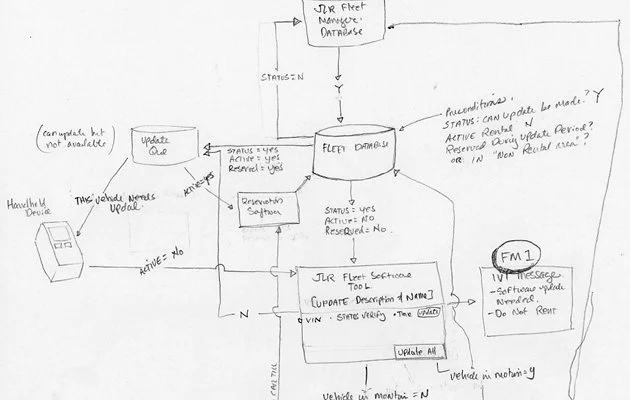 JLR Fleet
Manager
DATABASE
STATUS = N
Y
Preconditions.
STATUS: CAN update be made? Y
ACTIVE Rental N
Reserved During update Period?
OR IN "NON Rental area"?
(can update but
not available)
Update
Que
STATUS = yes
Active = yes
Reserved = yes
FLEET DATABASE
ACTIVE = yes
Handheld
Device
THIS vehicle needs
Update.
STATUS = yes
ACTIVE = NO
RESERVED = NO.
ACTIVE = NO
JLR Fleet Software
TOOL
[UPDATE Description & Name]
VIN · STATUS VERIFY · Time update
Update All
N
FM1
IVI message
- Software update
Needed.
- Do Not Rent
vehicle in motion = y